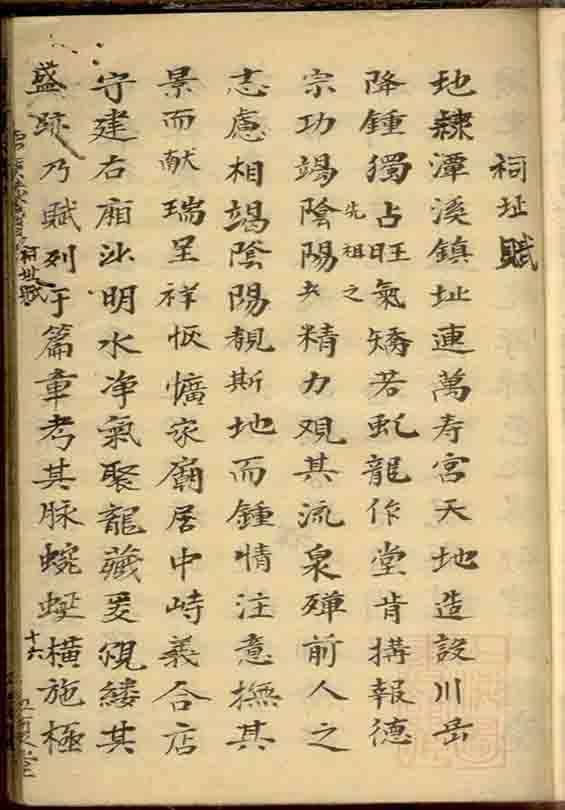 祠址賦
地隸潭溪鎮址連萬寿宮天地造設川岳
降鍾獨占旺氣矯若虬龍作堂肯搆報德
宗功竭陰陽先祖之精力观其流泉殫前人之
志慮相竭陰陽覩斯地而鍾情注意撫其
景而献瑞呈祥恢擴家廟居中峙義合店
守建右廂沘明水净氣聚龍藏爰覙縷其
盛跡乃賦列于篇章考其脉蜿蜒橫施極
祠址賦
十六